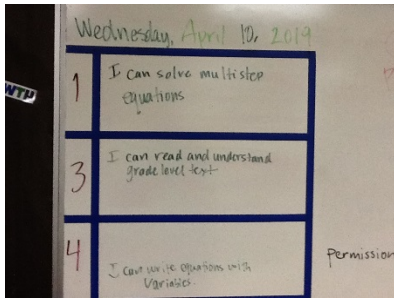 Wednesday, April 10, 2019
1
I can solve multistep
equations
3
I can read and understand
grade level text
4
I can write equations with
Variables.
Permission